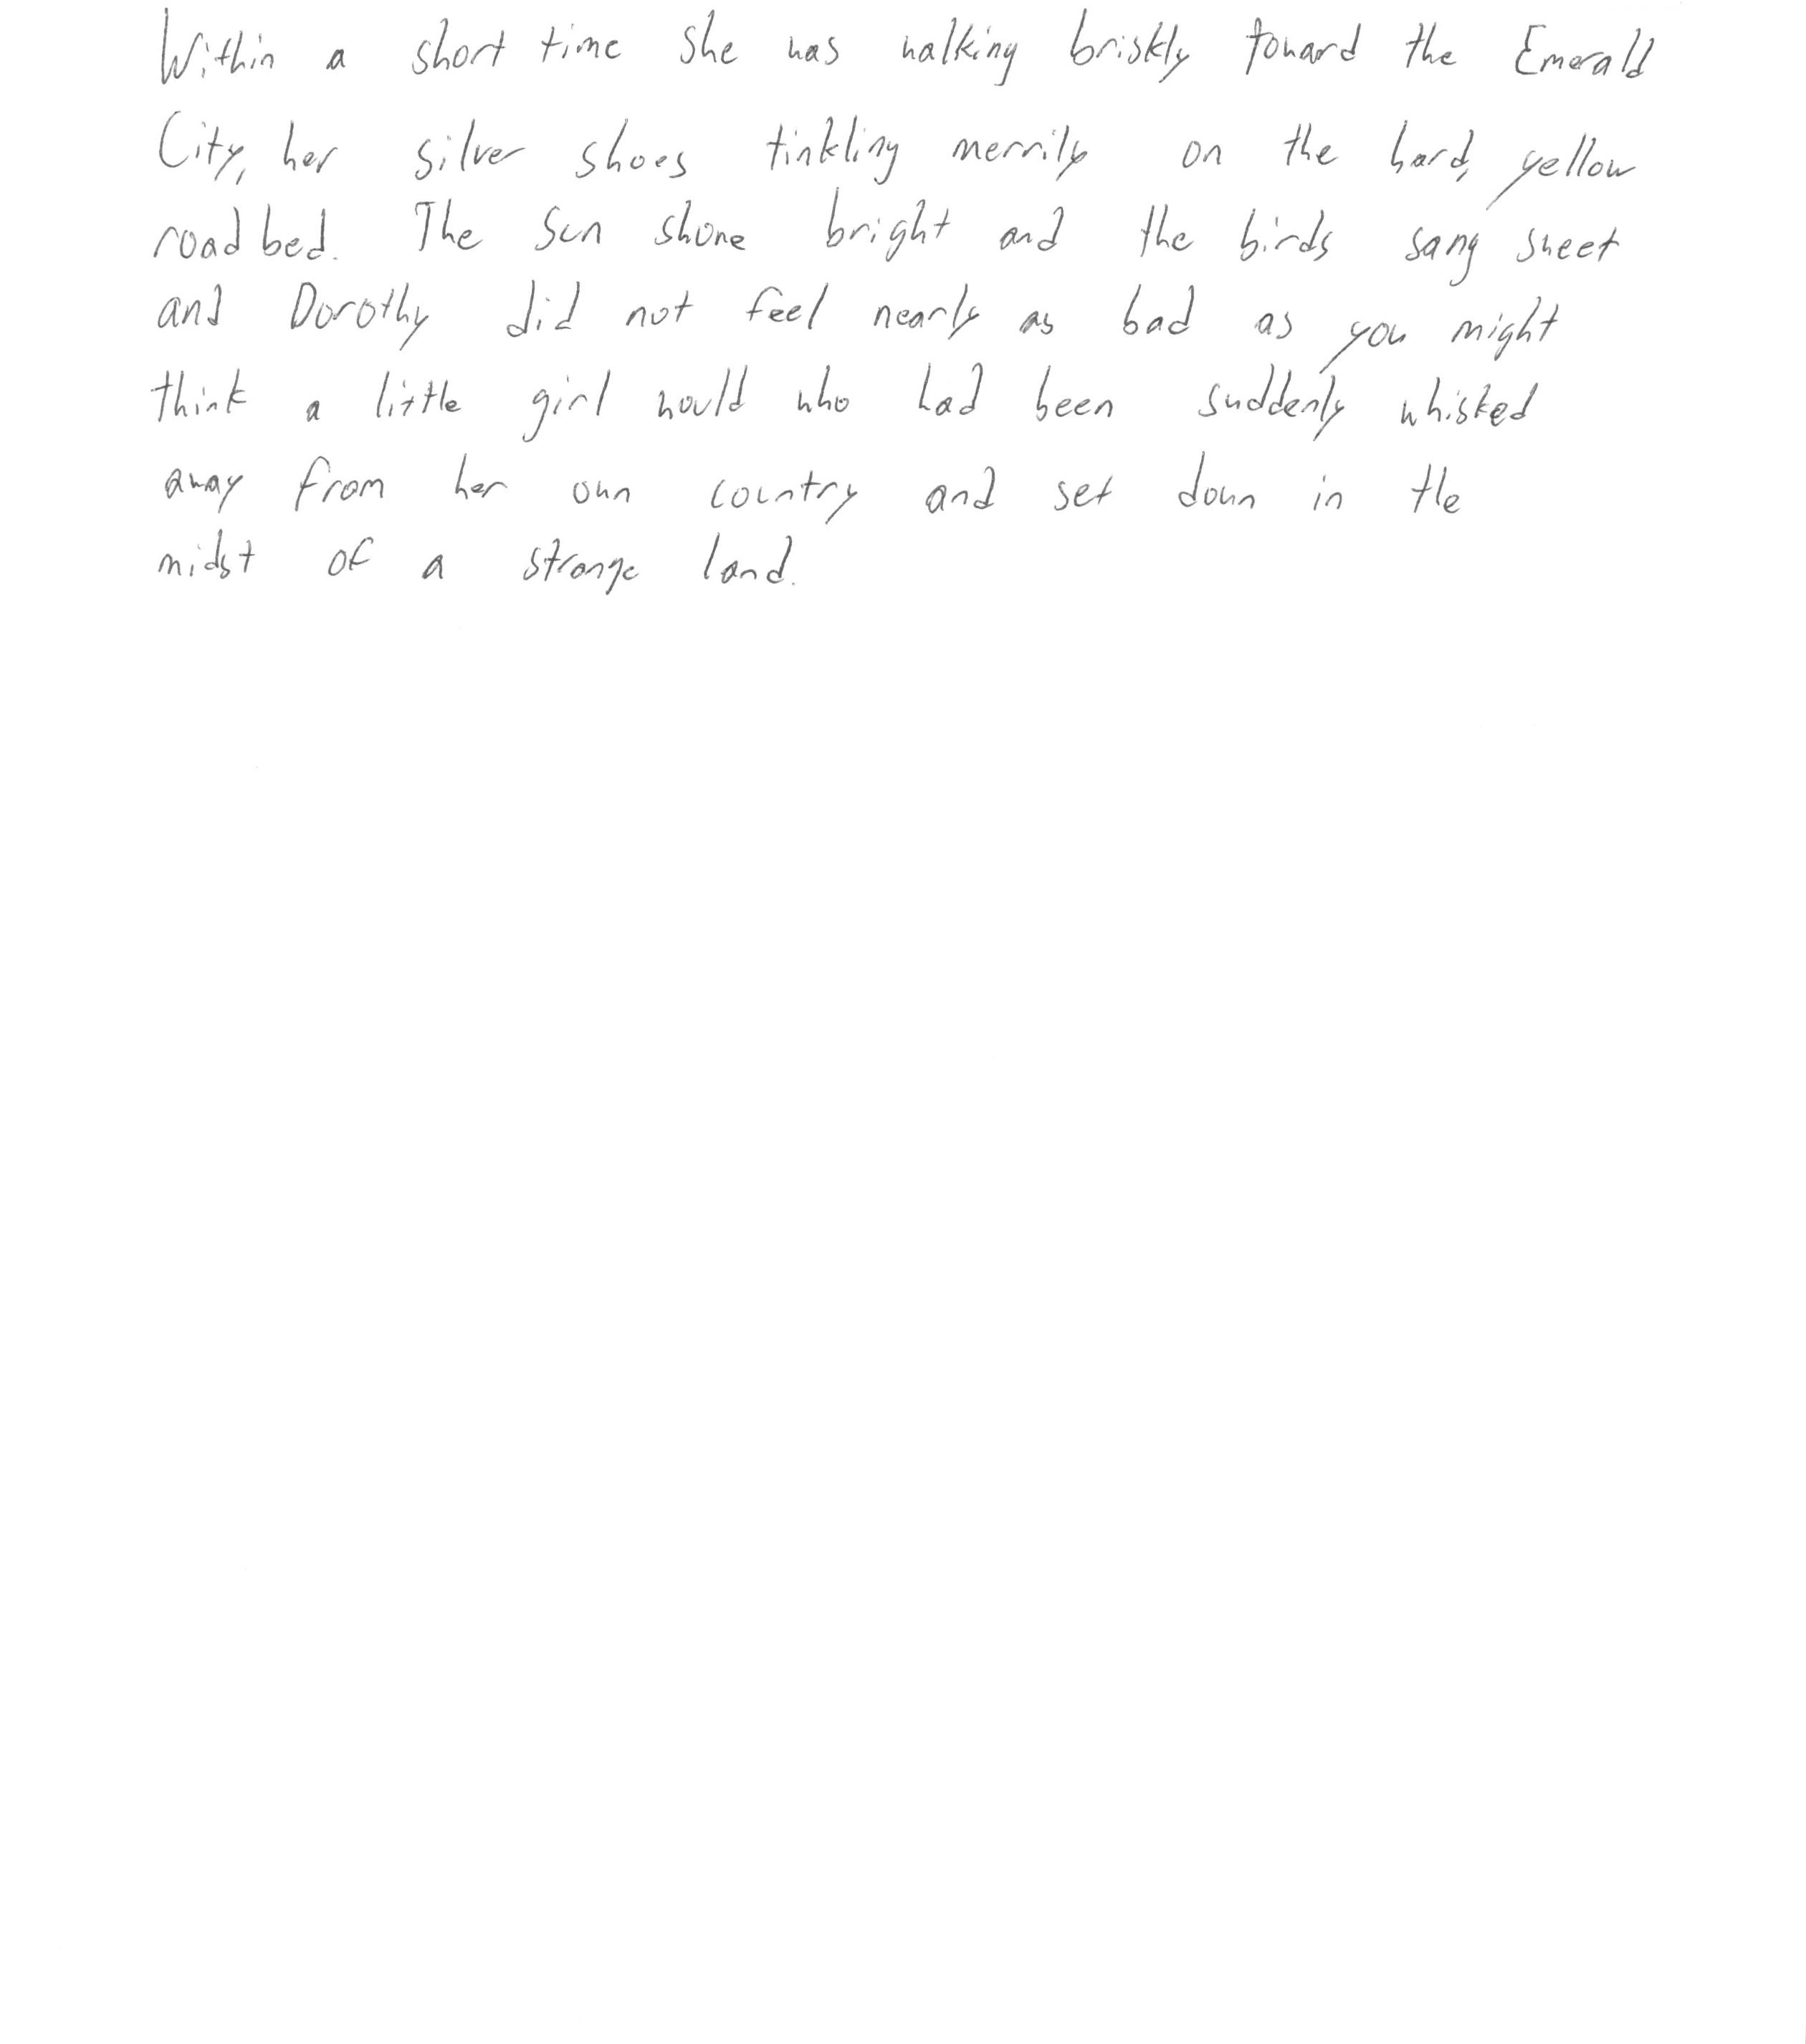 Within a short time she was walking briskly toward the Emerald
City, her silver shoes tinkling merrily on the hard, yellow
road bed. The sun shone bright and the birds sang sweet
and Dorothy did not feel nearly as bad as you might
think a little girl would who had been suddenly whisked
away from her own country and set down in the
midst of a strange land.